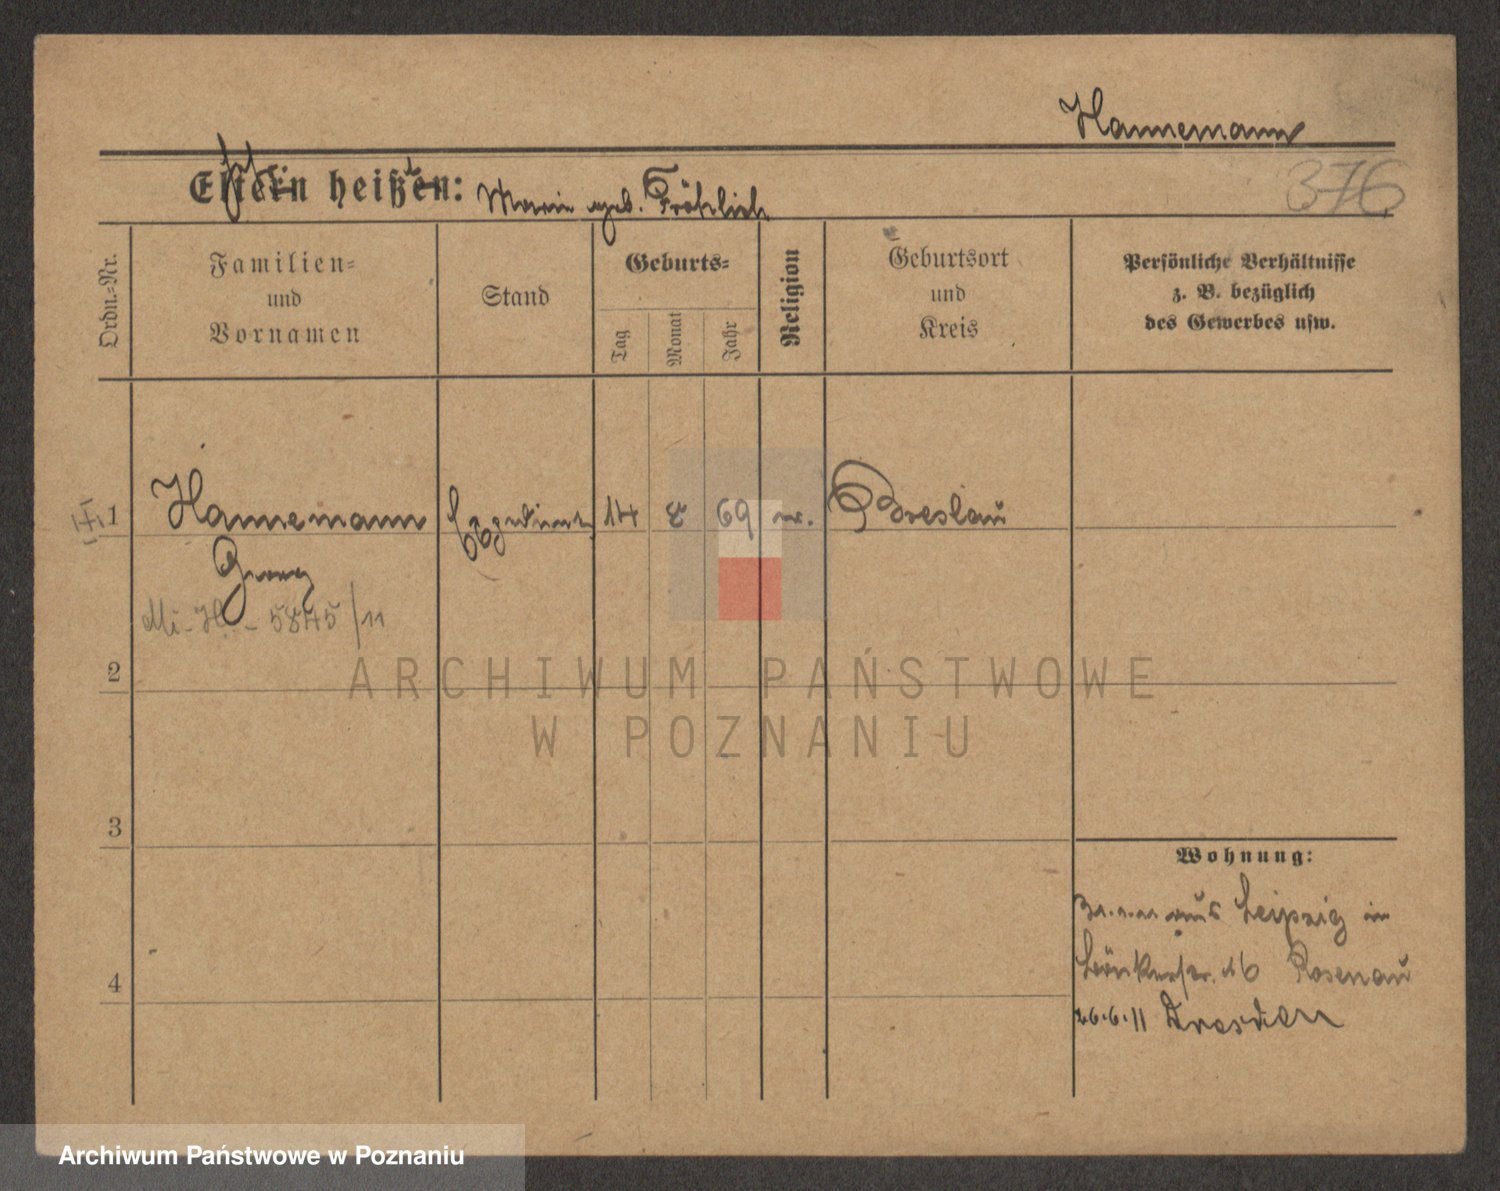 Hannemann
376
Eltern heißen: Marie geb. Fröhlich
Ordn.-Nr.
Familien-
und
Vornamen
Stand
Geburts-
Tag
Monat
Jahr
Religion
Geburtsort
und
Kreis
Persönliche Verhältnisse
z. B. bezüglich
des Gewerbes usw.
1 Hannemann Expedient 14 8 69 Breslau
Georg
5845/11
2
ARCHIWUM PAŃSTWOWE
W POZNANIU
3
4
Wohnung:
aus Leipzig in
16 Rosenau
26.6.11 Dresden
Archiwum Państwowe w Poznaniu